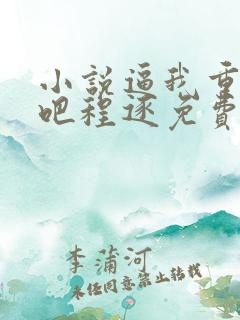 小說逼我重
吧程逐免費
李蒲河
未经同意禁止转载